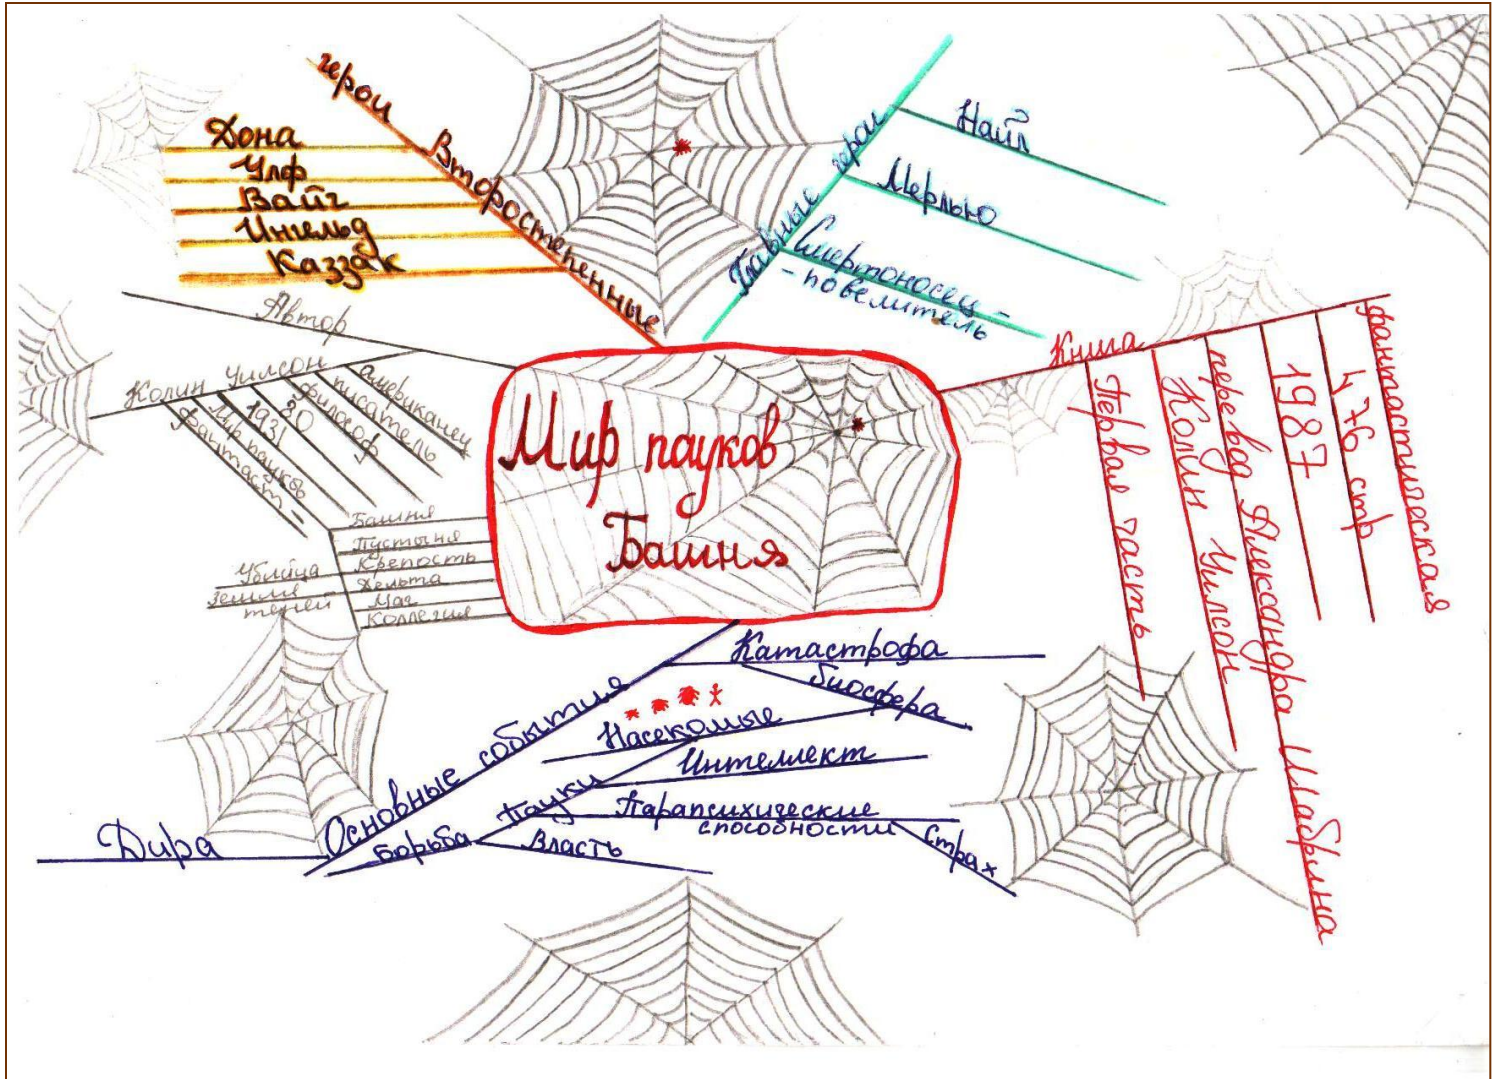 Мир пауков
Башня
Второстепенные
герои
Дона
Улф
Вайг
Ингельд
Каззак
Главные герои
Найл
Мерлью
Смертоносец -
- повелитель
Книга
Первая часть
Колин Уилсон
перевод Александра Шабрина
1987
476 стр
фантастическая
Автор
Колин Уилсон
американец
писатель
философ
20
1931
Мир пауков
фантаст
Башня
Пустыня
Крепость
Дельта
Маг
Коллегия
Убийца
Земля
теней
Основные события
Катастрофа
биосфера
Насекомые
Пауки
Интеллект
Парапсихические
способности
Страх
борьба
Власть
Дира